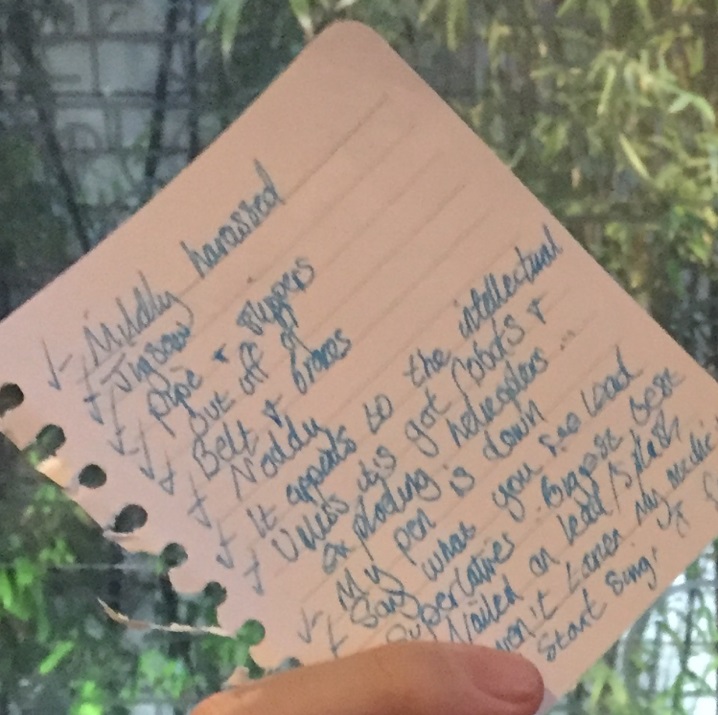 - Mildly harassed
- Jigsaw
- Pipe + slippers
- Out off of
- Belt + braces
- Noddy
- It appeals to the intellectual
- Unless it's got robots +
exploding helicopters ...
- My pen is down
- Say what you see
Superlatives Biggest Best
Nailed on lead / splash
won't my
Start Sing!